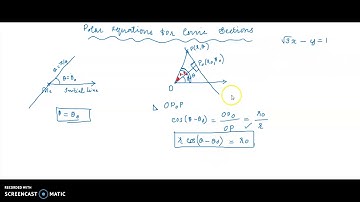 Polar Equations for Conic Sections
√3x − y = 1
θ = θ₀
Initial Line
θ = θ₀
P(r, θ)
P₀(r₀, θ₀)
O
△ OP₀P
cos(θ − θ₀) = OP₀/OP = r₀/r
r cos(θ − θ₀) = r₀
RECORDED WITH
SCREENCAST-O-MATIC